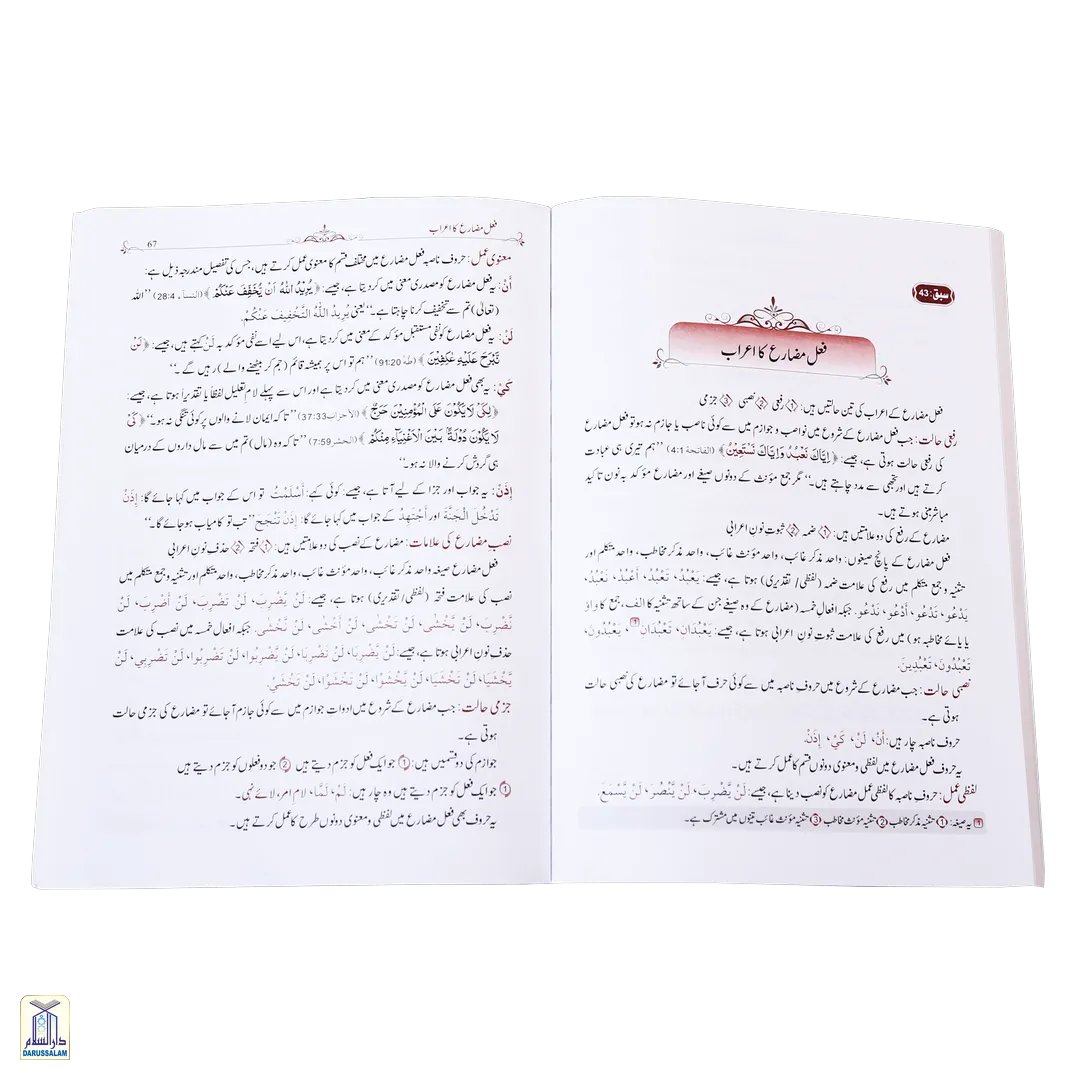 سبق: 43
فعل مضارع کا اعراب
فعل مضارع کے اعراب کی تین حالتیں ہیں: ① رفعی ② نصبی ③ جزمی
رفعی حالت: جب فعل مضارع کے شروع میں نواصب و جوازم میں سے کوئی ناصب یا جازم نہ ہو تو فعل مضارع
کی رفعی حالت ہوتی ہے، جیسے: ﴿إِيَّاكَ نَعْبُدُ وَإِيَّاكَ نَسْتَعِيْنُ﴾ (الفاتحة 4:1) ''ہم تیری ہی عبادت
کرتے ہیں اور تجھی سے مدد چاہتے ہیں۔'' مگر جمع مؤنث کے دونوں صیغے اور مضارع مؤکد بہ نون تاکید
مباشر مبنی ہوتے ہیں۔
مضارع کے رفع کی دو علامتیں ہیں: ① ضمہ ② ثبوت نونِ اعرابی
فعل مضارع کے پانچ صیغوں: واحد مذکر غائب، واحد مؤنث غائب، واحد مذکر مخاطب، واحد متکلم اور
تثنیہ و جمع متکلم میں رفع کی علامت ضمہ (لفظی/ تقدیری) ہوتا ہے، جیسے: يَعْبُدُ، تَعْبُدُ، أَعْبُدُ، نَعْبُدُ،
يَدْعُو، تَدْعُو، أَدْعُو، نَدْعُو. جبکہ افعال خمسہ (مضارع کے وہ صیغے جن کے ساتھ تثنیہ کا الف، جمع کا واؤ
یا یائے مخاطبہ ہو) میں رفع کی علامت ثبوت نون اعرابی ہوتا ہے، جیسے: يَعْبُدَانِ، تَعْبُدَانِ، يَعْبُدُونَ،
تَعْبُدُونَ، تَعْبُدِينَ.
نصبی حالت: جب مضارع کے شروع میں حروف ناصبہ میں سے کوئی حرف آ جائے تو مضارع کی نصبی حالت
ہوتی ہے۔
حروف ناصبہ چار ہیں: أَنْ، لَنْ، كَيْ، إِذَنْ.
یہ حروف فعل مضارع میں لفظی و معنوی دونوں قسم کا عمل کرتے ہیں۔
لفظی عمل: حروف ناصبہ کا لفظی عمل مضارع کو نصب دینا ہے، جیسے: لَنْ يَّضْرِبَ، لَنْ يَّنْصُرَ، لَنْ يَّسْمَعَ.
یہ صیغہ: ① تثنیہ مذکر مخاطب ② تثنیہ مؤنث مخاطب ③ تثنیہ مؤنث غائب تینوں میں مشترک ہے۔
فعل مضارع کا اعراب
67
معنوی عمل: حروف ناصبہ فعل مضارع میں مختلف قسم کا معنوی عمل کرتے ہیں، جس کی تفصیل مندرجہ ذیل ہے:
أَنْ: یہ فعل مضارع کو مصدری معنی میں کر دیتا ہے، جیسے: ﴿يُرِيْدُ اللّٰهُ اَنْ يُّخَفِّفَ عَنْكُمْ﴾ (النسآء 28:4) ''اللہ
(تعالیٰ) تم سے تخفیف کرنا چاہتا ہے۔'' یعنی يُرِيدُ اللّٰهُ التَّخْفِيفَ عَنْكُمْ.
لَنْ: یہ فعل مضارع کو نفی مستقبل مؤکد کے معنی میں کر دیتا ہے، اس لیے اسے نفی مؤکد بہ لَنْ کہتے ہیں، جیسے: ﴿لَنْ
نَّبْرَحَ عَلَيْهِ عٰكِفِيْنَ﴾ (طه 91:20) ''ہم تو اس پر ہمیشہ قائم (جم کر بیٹھنے والے) رہیں گے۔''
كَيْ: یہ بھی فعل مضارع کو مصدری معنی میں کر دیتا ہے اور اس سے پہلے لام تعلیل لفظاً یا تقدیراً ہوتا ہے، جیسے:
﴿لِكَيْ لَا يَكُوْنَ عَلَى الْمُؤْمِنِيْنَ حَرَجٌ﴾ (الأحزاب 37:33) ''تاکہ ایمان لانے والوں پر کوئی تنگی نہ ہو۔'' ﴿كَيْ
لَا يَكُوْنَ دُوْلَةً بَيْنَ الْاَغْنِيَآءِ مِنْكُمْ﴾ (الحشر 7:59) ''تاکہ وہ (مال) تم میں سے مال داروں کے درمیان
ہی گردش کرنے والا نہ ہو۔''
إِذَنْ: یہ جواب اور جزا کے لیے آتا ہے، جیسے: کوئی کہے: أَسْلَمْتُ تو اس کے جواب میں کہا جائے گا: إِذَنْ
تَدْخُلَ الْجَنَّةَ اور أَجْتَهِدُ کے جواب میں کہا جائے گا: إِذَنْ تَنْجَحَ ''تب تو کامیاب ہو جائے گا۔''
نصب مضارع کی علامات: مضارع کے نصب کی دو علامتیں ہیں: ① فتحہ ② حذف نون اعرابی
فعل مضارع صیغہ واحد مذکر غائب، واحد مؤنث غائب، واحد مذکر مخاطب، واحد متکلم اور تثنیہ و جمع متکلم میں
نصب کی علامت فتحہ (لفظی/تقدیری) ہوتا ہے، جیسے: لَنْ يَّضْرِبَ، لَنْ تَضْرِبَ، لَنْ أَضْرِبَ، لَنْ
نَّضْرِبَ، لَنْ يَّخْشٰى، لَنْ تَخْشٰى، لَنْ أَخْشٰى، لَنْ نَّخْشٰى. جبکہ افعال خمسہ میں نصب کی علامت
حذف نون اعرابی ہوتا ہے، جیسے: لَنْ يَّضْرِبَا، لَنْ تَضْرِبَا، لَنْ يَّضْرِبُوا، لَنْ تَضْرِبُوا، لَنْ تَضْرِبِي، لَنْ
يَّخْشَيَا، لَنْ تَخْشَيَا، لَنْ يَّخْشَوْا، لَنْ تَخْشَوْا، لَنْ تَخْشَيْ.
جزمی حالت: جب مضارع کے شروع میں ادوات جوازم میں سے کوئی جازم آ جائے تو مضارع کی جزمی حالت
ہوتی ہے۔
جوازم کی دو قسمیں ہیں: ① جو ایک فعل کو جزم دیتے ہیں ② جو دو فعلوں کو جزم دیتے ہیں
① جو ایک فعل کو جزم دیتے ہیں وہ چار ہیں: لَمْ، لَمَّا، لام امر، لائے نہی۔
یہ حروف بھی فعل مضارع میں لفظی و معنوی دونوں طرح کا عمل کرتے ہیں۔
دار السلام
DARUSSALAM